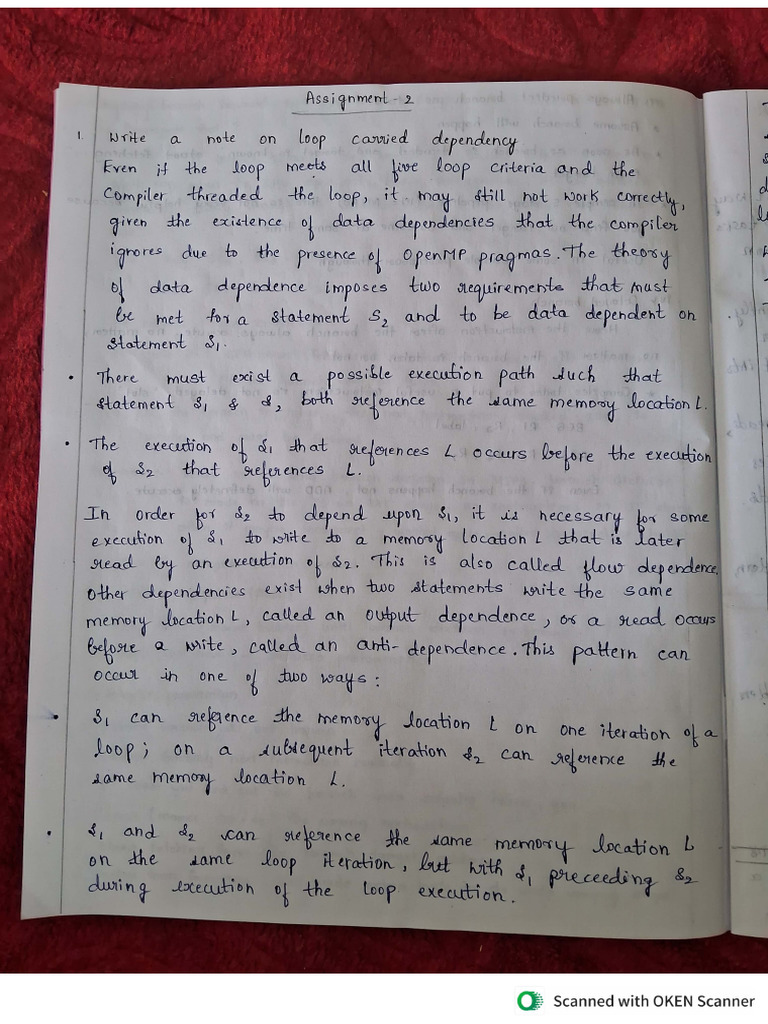 Assignment - 2
1. Write a note on loop carried dependency
Even if the loop meets all five loop criteria and the
Compiler threaded the loop, it may still not work correctly,
given the existence of data dependencies that the compiler
ignores due to the presence of OpenMP pragmas. The theory
of data dependence imposes two requirements that must
be met for a statement S2 and to be data dependent on
statement S1.
• There must exist a possible execution path such that
statement S1 & S, both reference the same memory location L.
• The execution of S1 that references L occurs before the execution
of S2 that references L.
In order for S2 to depend upon S1, it is necessary for some
execution of S1 to write to a memory location L that is later
read by an execution of S2. This is also called flow dependence.
Other dependencies exist when two statements write the same
memory location L, called an output dependence, or a read occurs
before a write, called an anti-dependence. This pattern can
occur in one of two ways:
• S1 can reference the memory location L on one iteration of a
loop; on a subsequent iteration S2 can reference the
same memory location L.
• S1 and S2 can reference the same memory location L
on the same loop iteration, but with S1 preceeding S2
during execution of the loop execution.
Scanned with OKEN Scanner